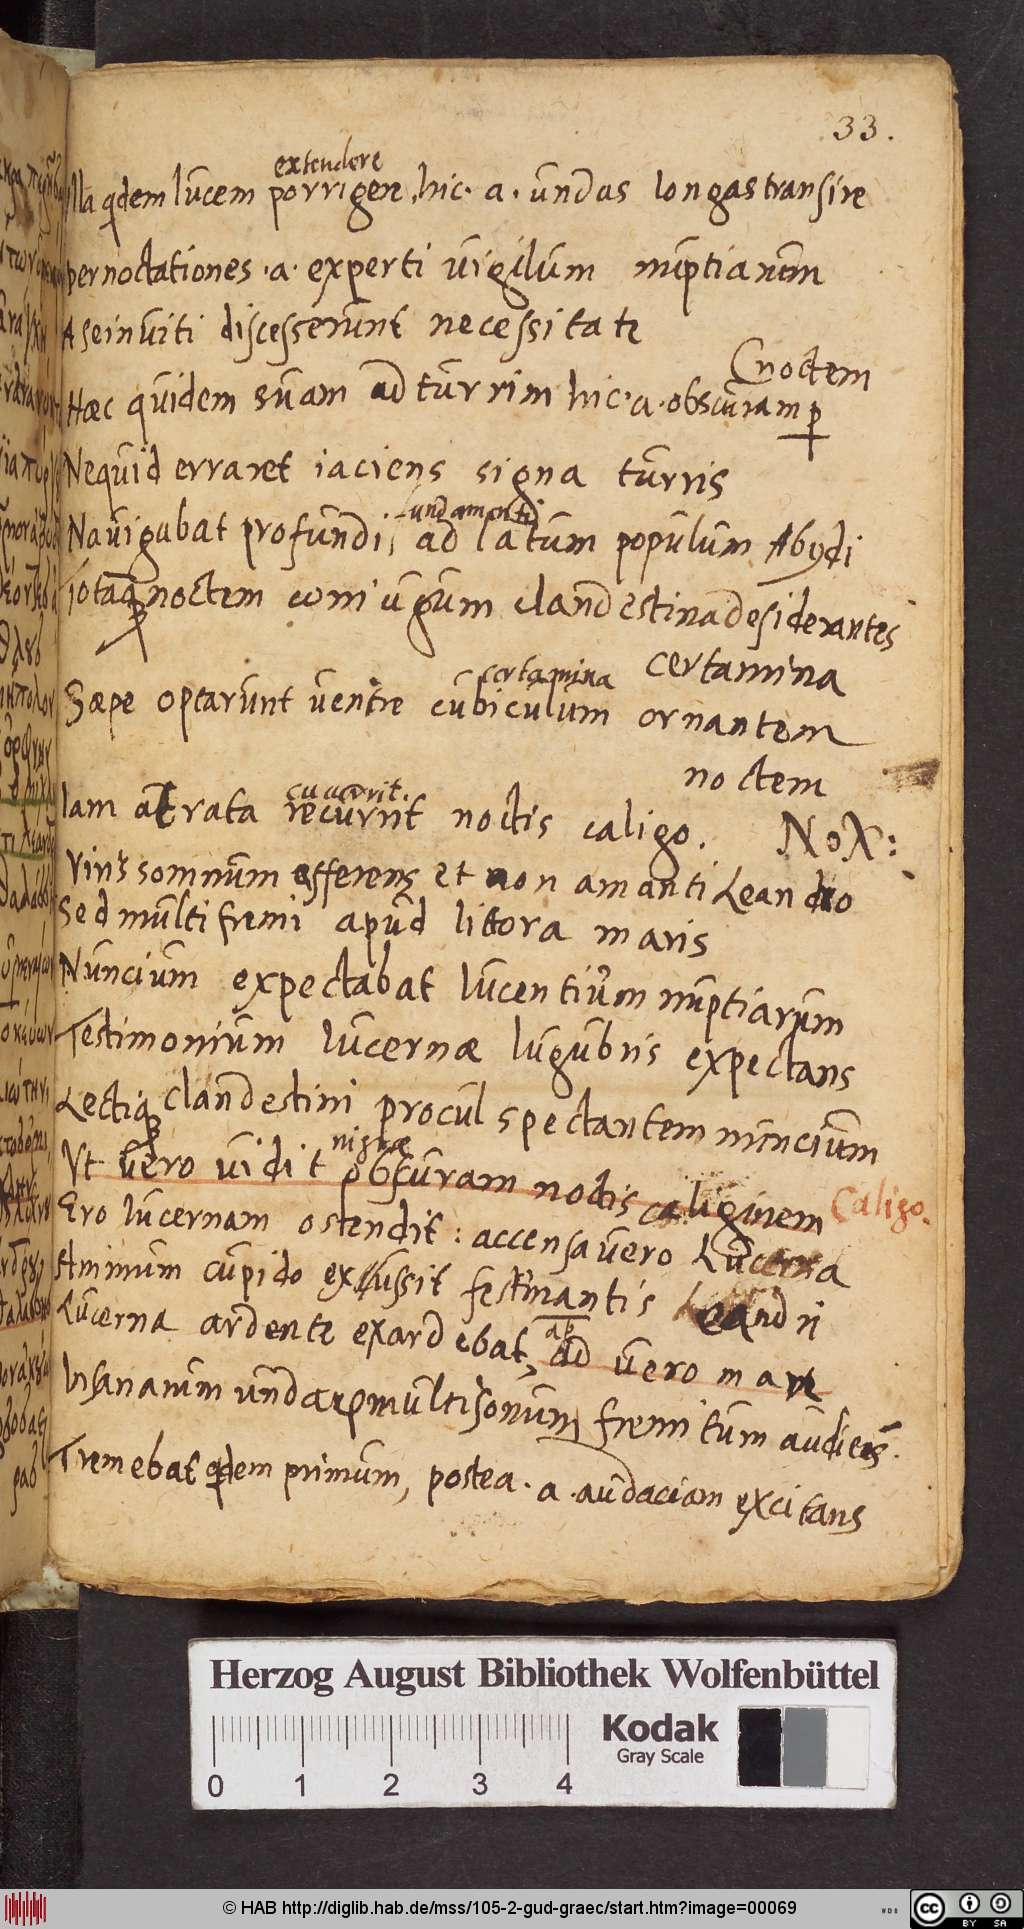 33.
extendere
Illa qdem lucem porrigere, hic · a · undas longas transire
pernoctationes · a · experti vigilum nuptiarum
A se inviti discesserunt necessitate
noctem
Hæc quidem suam ad turrim hic · a · obscuram p
Nequid erraret iaciens signa turris
fundamenti
Navigabat profundi, ad latum populum Abydi
Totaq noctem coniugum clandestina desiderantes
certamina certamina
Sæpe optarunt venire cubiculum ornantem
noctem
cucurrit.
Iam atrata recurrit noctis caligo. NoX:
Viris somnum afferens et non amanti Leandro
Sed multifremi apud littora maris
Nuncium expectabat lucentium nuptiarum
Testimonium lucernæ lugubris expectans
Lectiq clandestini procul spectantem nuncium
nigræ
Ut vero vidit obscuram noctis caliginem Caligo.
Ero lucernam ostendit : accensa vero Lucerna
Animum cupido exussit festinantis Leandri
Lucerna ardente exardebat,
ap
ad vero mare
Insanarum undarum multisonum fremitum audiens.
Tremebat qdem primum, postea · a · audaciam excitans
Herzog August Bibliothek Wolfenbüttel
Kodak
Gray Scale
0 1 2 3 4
© HAB http://diglib.hab.de/mss/105-2-gud-graec/start.htm?image=00069
WDB
cc BY SA